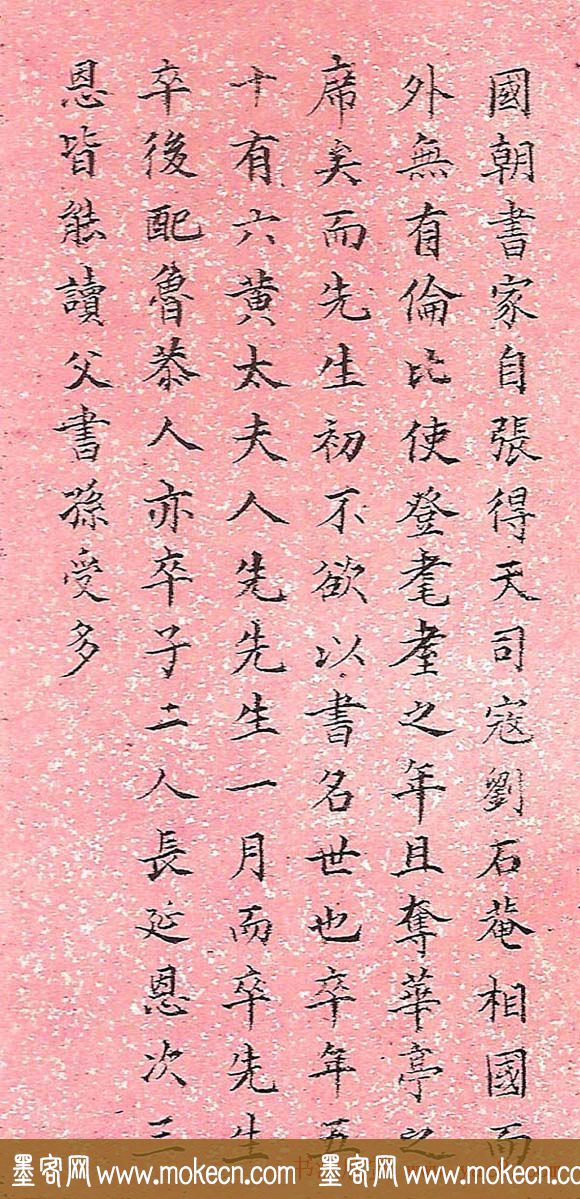 國朝書家自張得天司寇劉石菴相國而
外無有倫比使登耄耋之年且奪華亭之
席矣而先生初不欲以書名世也卒年五
十有六黄太夫人先先生一月而卒先生
卒後配魯恭人亦卒子二人長延恩次三
恩皆能讀父書孫受多
墨客网 www.mokecn.com 墨客网 www.mokecn.com